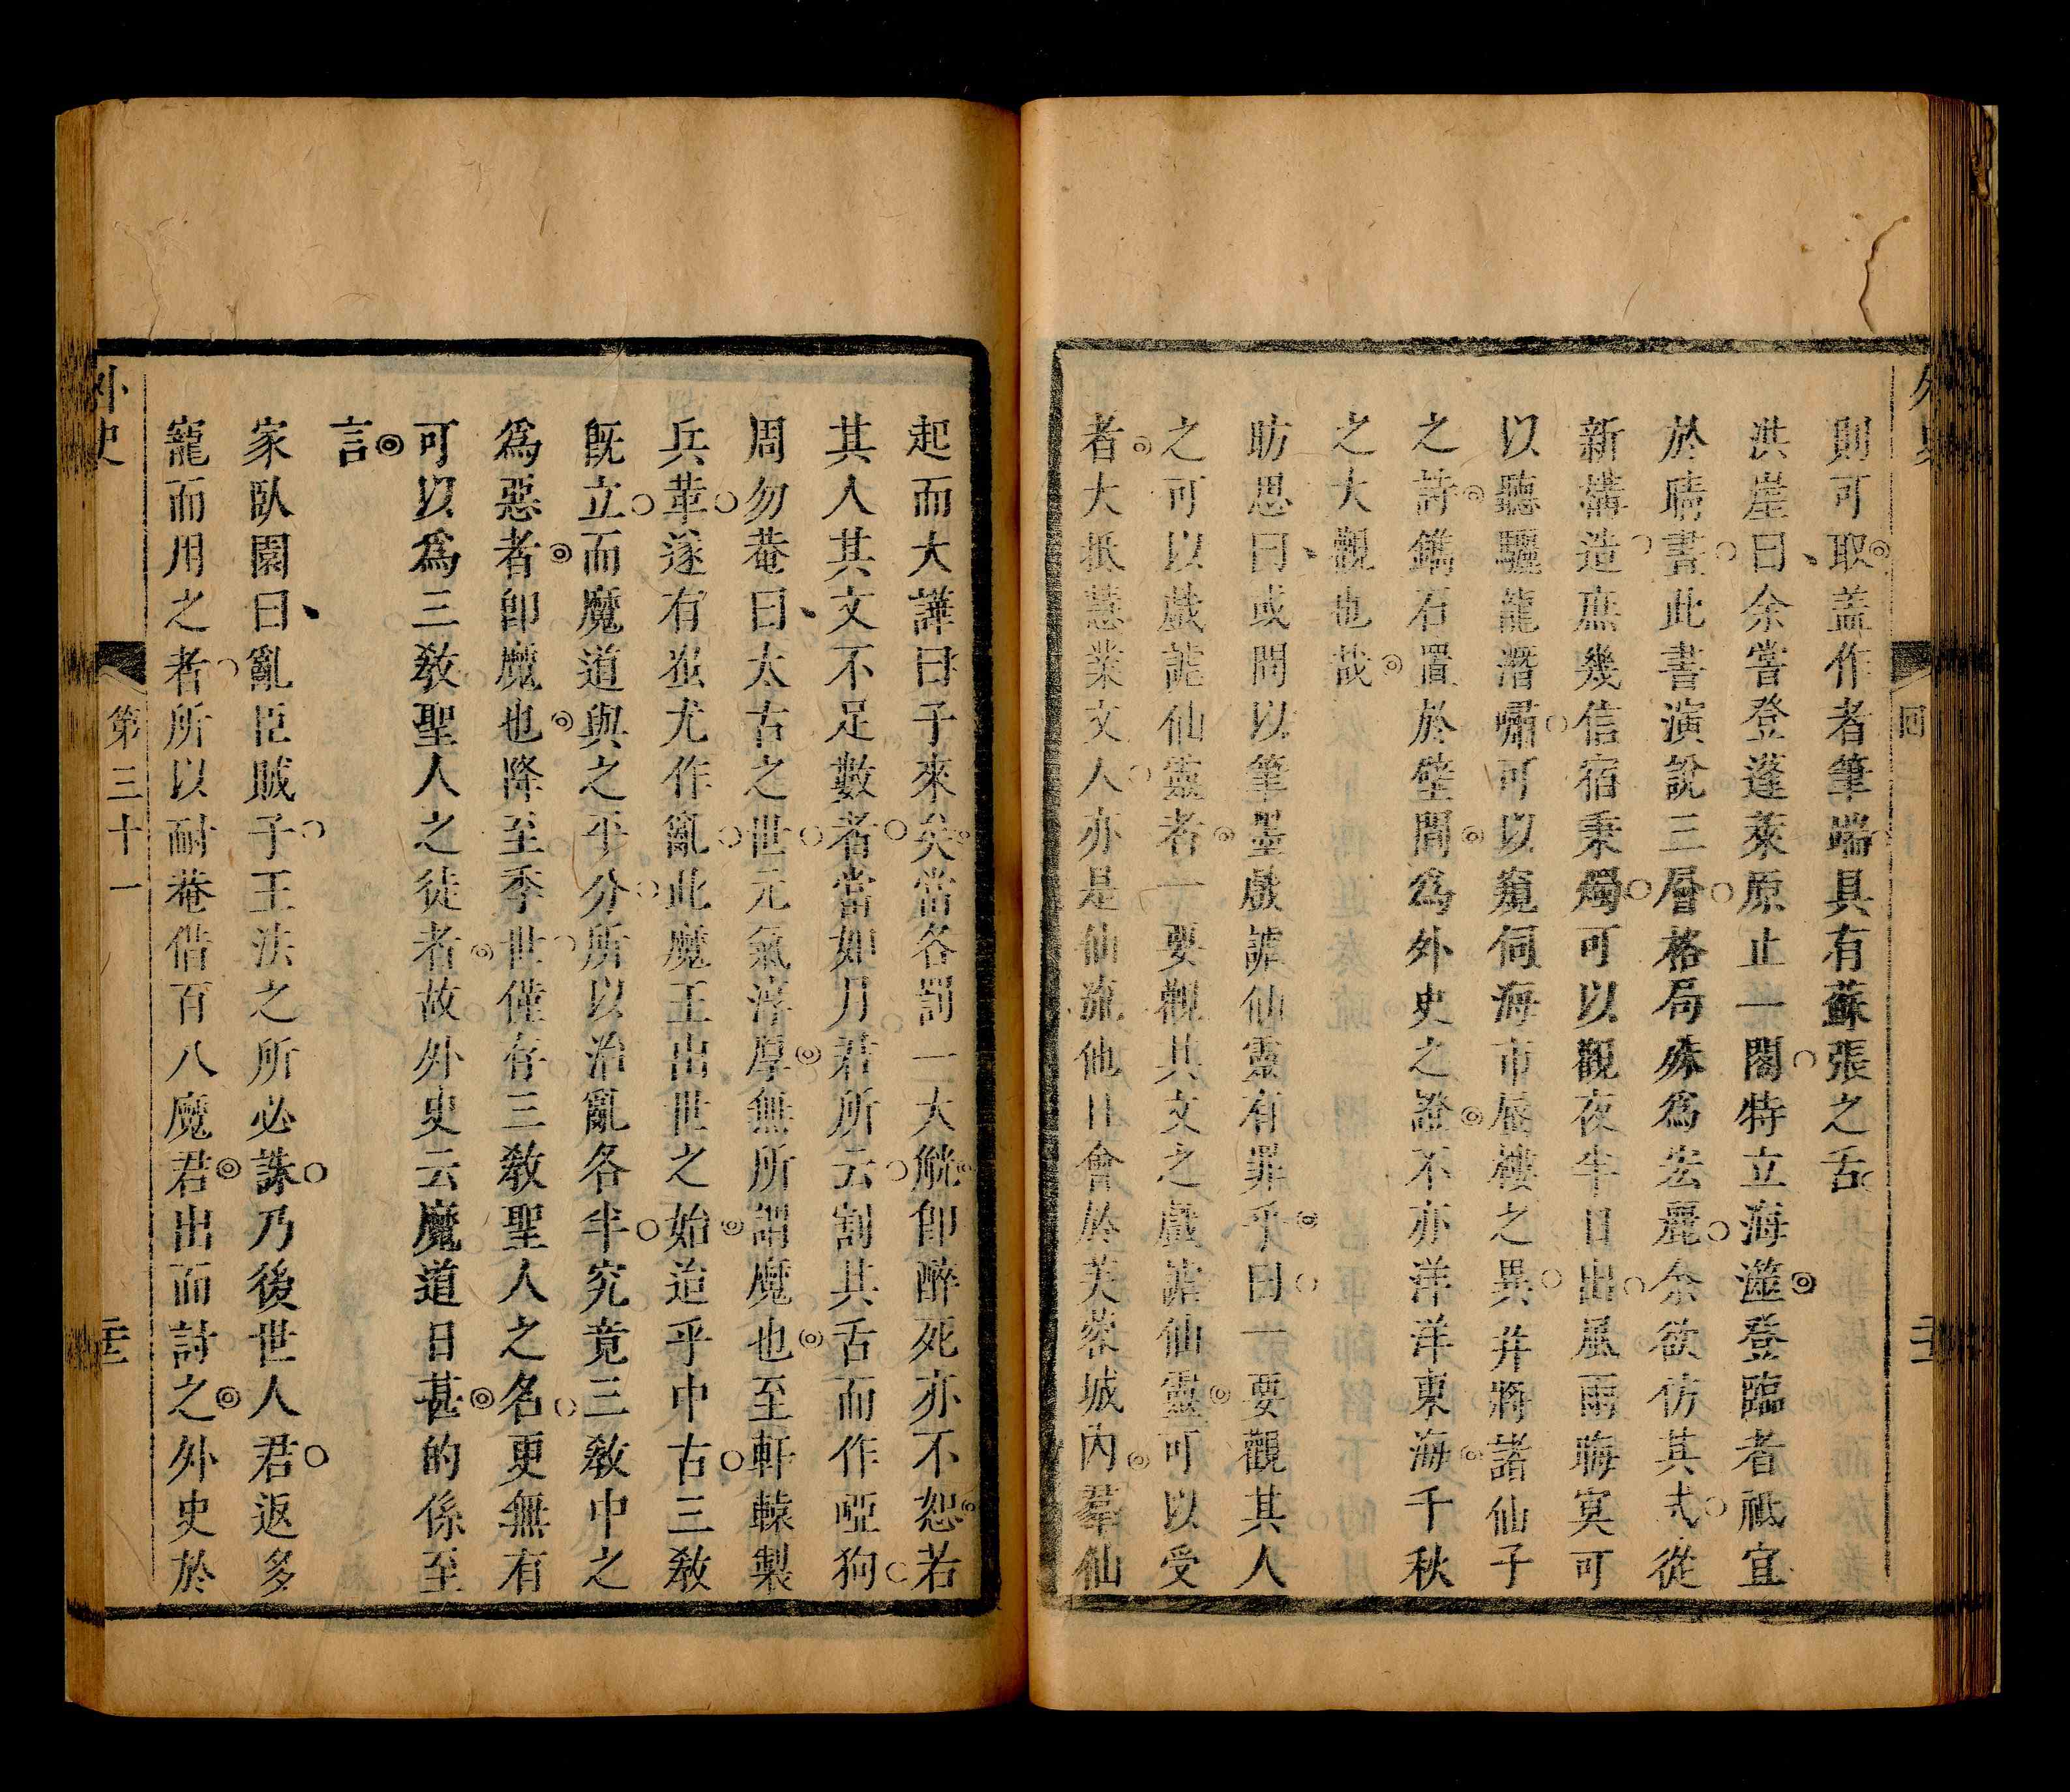 外史
回
二十二
則可取蓋作者筆端具有蘇張之舌
洪崖曰余嘗登蓬萊原止一閣特立海澨登臨者祗宜
於晴晝此書演說三層格局殊為宏麗余欲仿其式從
新構造庶幾信宿秉燭可以觀夜半日出風雨晦冥可
以聽驪龍潛嘯可以窺伺海市蜃樓之異并將諸仙子
之詩鐫石置於壁間為外史之證不亦洋洋東海千秋
之大觀也哉
昉思曰或問以筆墨戲謔仙靈有罪乎曰一要觀其人
之可以戲謔仙靈者一要觀其文之戲謔仙靈可以受
者大抵慧業文人亦是仙流他日會於芙蓉城內羣仙
起而大譁曰子來矣當各罰一大觥卽醉死亦不恕若
其人其文不足數者當如月君所云割其舌而作啞狗
周勿菴曰太古之世元氣渾厚無所謂魔也至軒轅製
兵革遂有蚩尤作亂此魔王出世之始迨乎中古三敎
旣立而魔道與之平分所以治亂各半究竟三敎中之
為惡者卽魔也降至季世僅存三敎聖人之名更無有
可以為三敎聖人之徒者故外史云魔道日甚的係至
言
家臥園曰亂臣賊子王法之所必誅乃後世人君返多
寵而用之者所以耐菴借百八魔君出而討之外史於
外史
第三十一
二十三